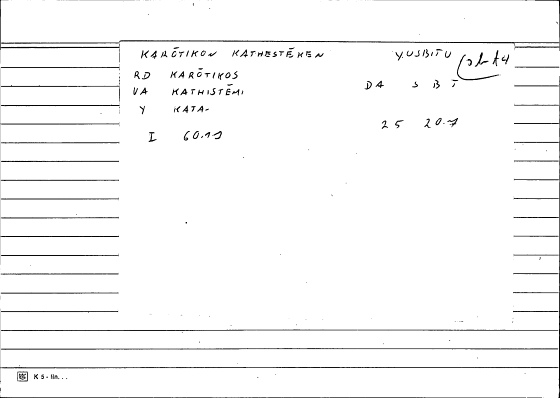 KARŌTIKON KATHESTĒKEN YUSBITU
RD KARŌTIKOS
VA KATHISTĒMI DA S B T
Y KATA-
I 60.19 25 20.7
K 5 - lin...